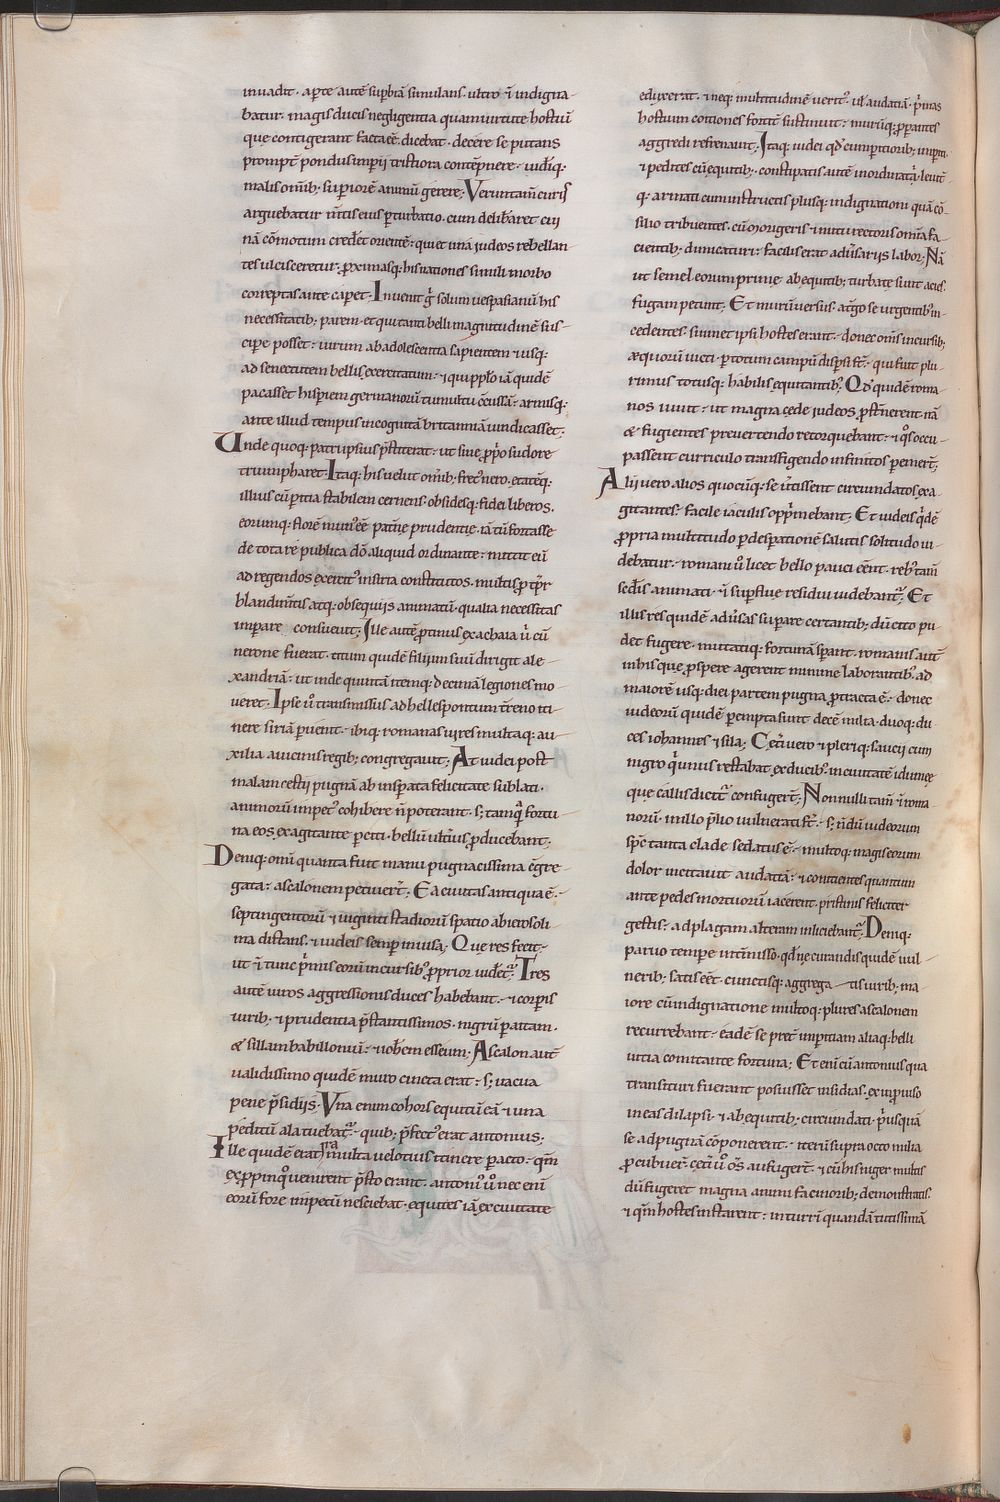 inuadit · aperte autē supbiā simulans · ultro & indigna-
batur · magis ducis negligentia quam uirtute hostiū
que contigerant facta eē dicebat · decere se putans
prompte pondus imperii tristiora contēpnere · uidiq:
malis omib; supiorē animū gerere; Verum tam̄ curis
arguebatur m̄tis eius pturbatio · cum delib̄aret cui
nā cōmotum cred̄et orientē · qui et una iudeos rebellan-
tes ulcisceretur · pximasq: his nationes simili morbo
correptas ante capet · Inuenit g̊ solum uespasianū his
necessitatib; parem · et qui tanti belli magnitudinē sus-
cipe posset · uirum ab adolescentia sapientem & usq:
ad senectutem bellis exercitatum · & qui pplo iā quidē
pacasset hispiem germanorū tumultu cc̄ussā · armisq:
ante illud tempus incognitā britanniā uindicasset;
Unde quoq: patri ipsius p̄stiterat · ut sine pp̄o sudore
triumpharet · Itaq: his uelut omīb; fret' nero · etatēq:
illius cū pitia stabilem cernens · obsidesq: fidei liberos ·
eorumq: florē mun'eē pat̄ne prudentie · iā tū fortasse
de tota re publica dō aliquid ordinante · mittit eū
ad regendos exercit' in siria constitutos · multis p tp̄r
blandim̄tis atq: obsequiis animatū · qualia necessitas
impare consueuit; Ille autē ptinus ex achaia ubi cū
nerone fuerat · titum quidē filium suū dirigit ale-
xandriā · ut inde quintā itemq: decimā legiones mo-
ueret · Ipse ū transmissus ad hellespontum t̄reno iti-
nere siriā puenit · ibiq: romanas uires multaq: au-
xilia a uicinis regib; congregauit; At iudei post
malam cestii pugnā ab insperata felicitate sublati ·
animorū impet' cohibere n̄ poterant · s; tamq̄ fortu-
na eos exagitante pciti · bellū ulteri' pducebant;
Deniq: omī quanta fuit manu pugnacissima c̄gre-
gata · ascalonem petiuert̄ · Ea ciuitas antiqua ē ·
septingentorū & uiginti stadiorū spatio ab ierosoli-
ma distans · & iudeis semp inuisa; Que res fecit ·
ut & tunc p̄mis eorū incursib' ppior uid̄et̄; Tres
autē uiros aggressionis duces habebant · & corpis
uirib; & prudentia p̄stantissimos · nigrū paitam ·
& sillam babillonniū · & ioh̄em esseum · Ascalon aut̄
ualidissimo quidē muro cincta erat · s; uacua
pene p̄sidiis · Vna enim cohors equitū eā & una
peditū ala tuebat̄ · quib; p̄fect' erat antonius;
Ille quidē erat ira multa uelotius itinere pacto · q̄m
ex ppinq̊ uenirent p̄sto erant · antoni' ū nec enī
eorū fore impetū nesciebat · equites iā ex ciuitate
eduxerat · & neq: multitudinē uerit' · ul' audatiā · p̄mas
hostium cotiones fortit̄ sustinuit · murūq: pparantes
aggredi refrenauit; Itaq: iudei qd' cum peritiorib; imperiti ·
& pedites cū equitib; · constipatis autē inordinati · leuit̄
q: armati cum instructis · plusq: indignationi quā cō-
silio tribuentes · cū morigeris & nutu rectoris omīa fa-
cientib; dimicaturi · facilis erat adūsariis labor; Nā
ut semel eorum prime ab equitib; turbate sunt acies ·
fugam petiunt · Et murū uersus · at̄go se urgentib' in-
cedentes · suimet ipsi hostes erant · donec om̄s incursib;
æquorū uicti · p totum campū dispsi st̄ · qui fuit plu-
rimus totusq: habilis equitantib' · Qd' quidē roma-
nos iuuit · ut magna cęde iudeos pst̄nerent · nā
& fugientes preuertendo retorquebant · & q̊s occu-
passent curriculo transfigendo infinitos perimert̄;
Alii uero alios quocūq: se ūtissent circumdatos exa-
gitantes · facile iaculis opp̄mebant; Et iudeis q̄dē
propria multitudo p desperationē salutis solitudo ui-
debatur · romani ū licet bello pauci eēnt · reb' tam̄
sed̄is animati · & supflue residui uidebant̄; Et
illis res quidē adūsas supare certantib; dū cito pu-
det fugere · mutatiq: fortunā sp̄ant · romanis aut̄
in his que prospere agerent minime laborantib' ad
maiorē usq: diei partem pugna ptracta ē · donec
iudeorū quidē perempta sunt decē milia · duoq: du-
ces iohannes & sila; Cet̄i uero & pleriq: saucii cum
nigro qui unus restabat ex ducib' in ciuitatē idumeę
que callis dicit̄ confugert̄; Nonnulli tam̄ & roma-
norū in illo plio uulnerati st̄ · s; n̄dū iudeorum
sp̄c tanta clade sedatus ē · multoq: magis eorum
dolor incitauit audatiā · & contuentes quantum
ante pedes mortuorū iacerent · pristinis feliciter
gestis · ad plagam alteram inliciebant̄; Deniq:
paruo tempe int̄misso · qd' ne curandis quidē uul-
nerib; satis eēt · cunctisq: aggrega-tis uirib; ma-
iore cū indignatione multoq: plures ascalonem
recurrebant · eadē se pret̄ imperitiam aliaq: belli
uitia comitante fortuna; Et eni cū antonius qua
transituri fuerant posuisset insidias · ex improuiso
in eas dilapsi · & ab equitib; circumdati · p̄usquā
se ad pugnā cōponerent · iterū supra octo milia
procubuert̄ · cet̄i ū os̄ aufugert̄ · & cū his niger multis
dū fugeret magna animi facinorib; demonstratis ·
& q̄m hostes instarent · in turri quandā tutissimā